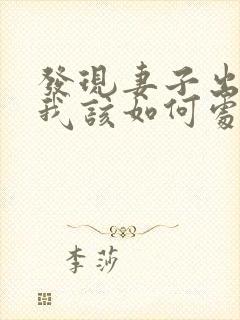 發現妻子出
我該如何處
李莎